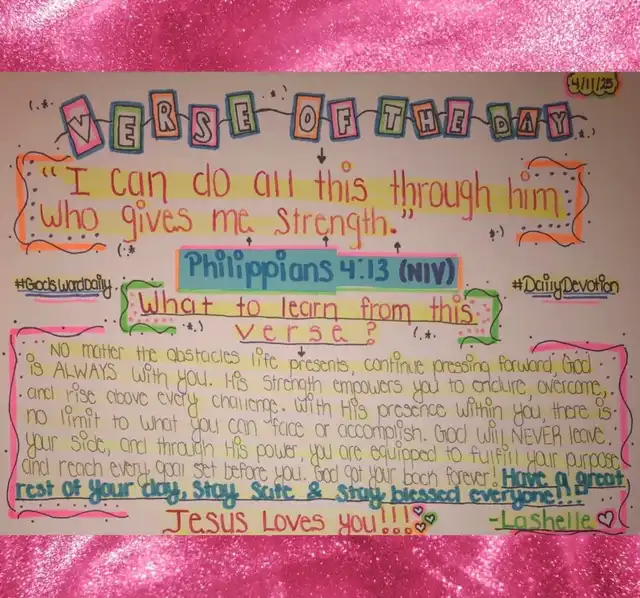 4/11/25
VERSE OF THE DAY
"I can do all this through him
who gives me strength."
Philippians 4:13 (NIV)
#GodsWordDaily
#DailyDevotion
What to learn from this
verse?
No matter the obstacles life presents, continue pressing forward. God
is ALWAYS with you. His strength empowers you to endure, overcome,
and rise above every challenge. With His presence within you, there is
no limit to what you can face or accomplish. God will NEVER leave
your side, and through His power, you are equipped to fulfill your purpose
and reach every goal set before you. God got your back forever! Have a great
rest of your day, Stay Safe & Stay blessed everyone!!!
Jesus Loves you!!!
-Lashelle